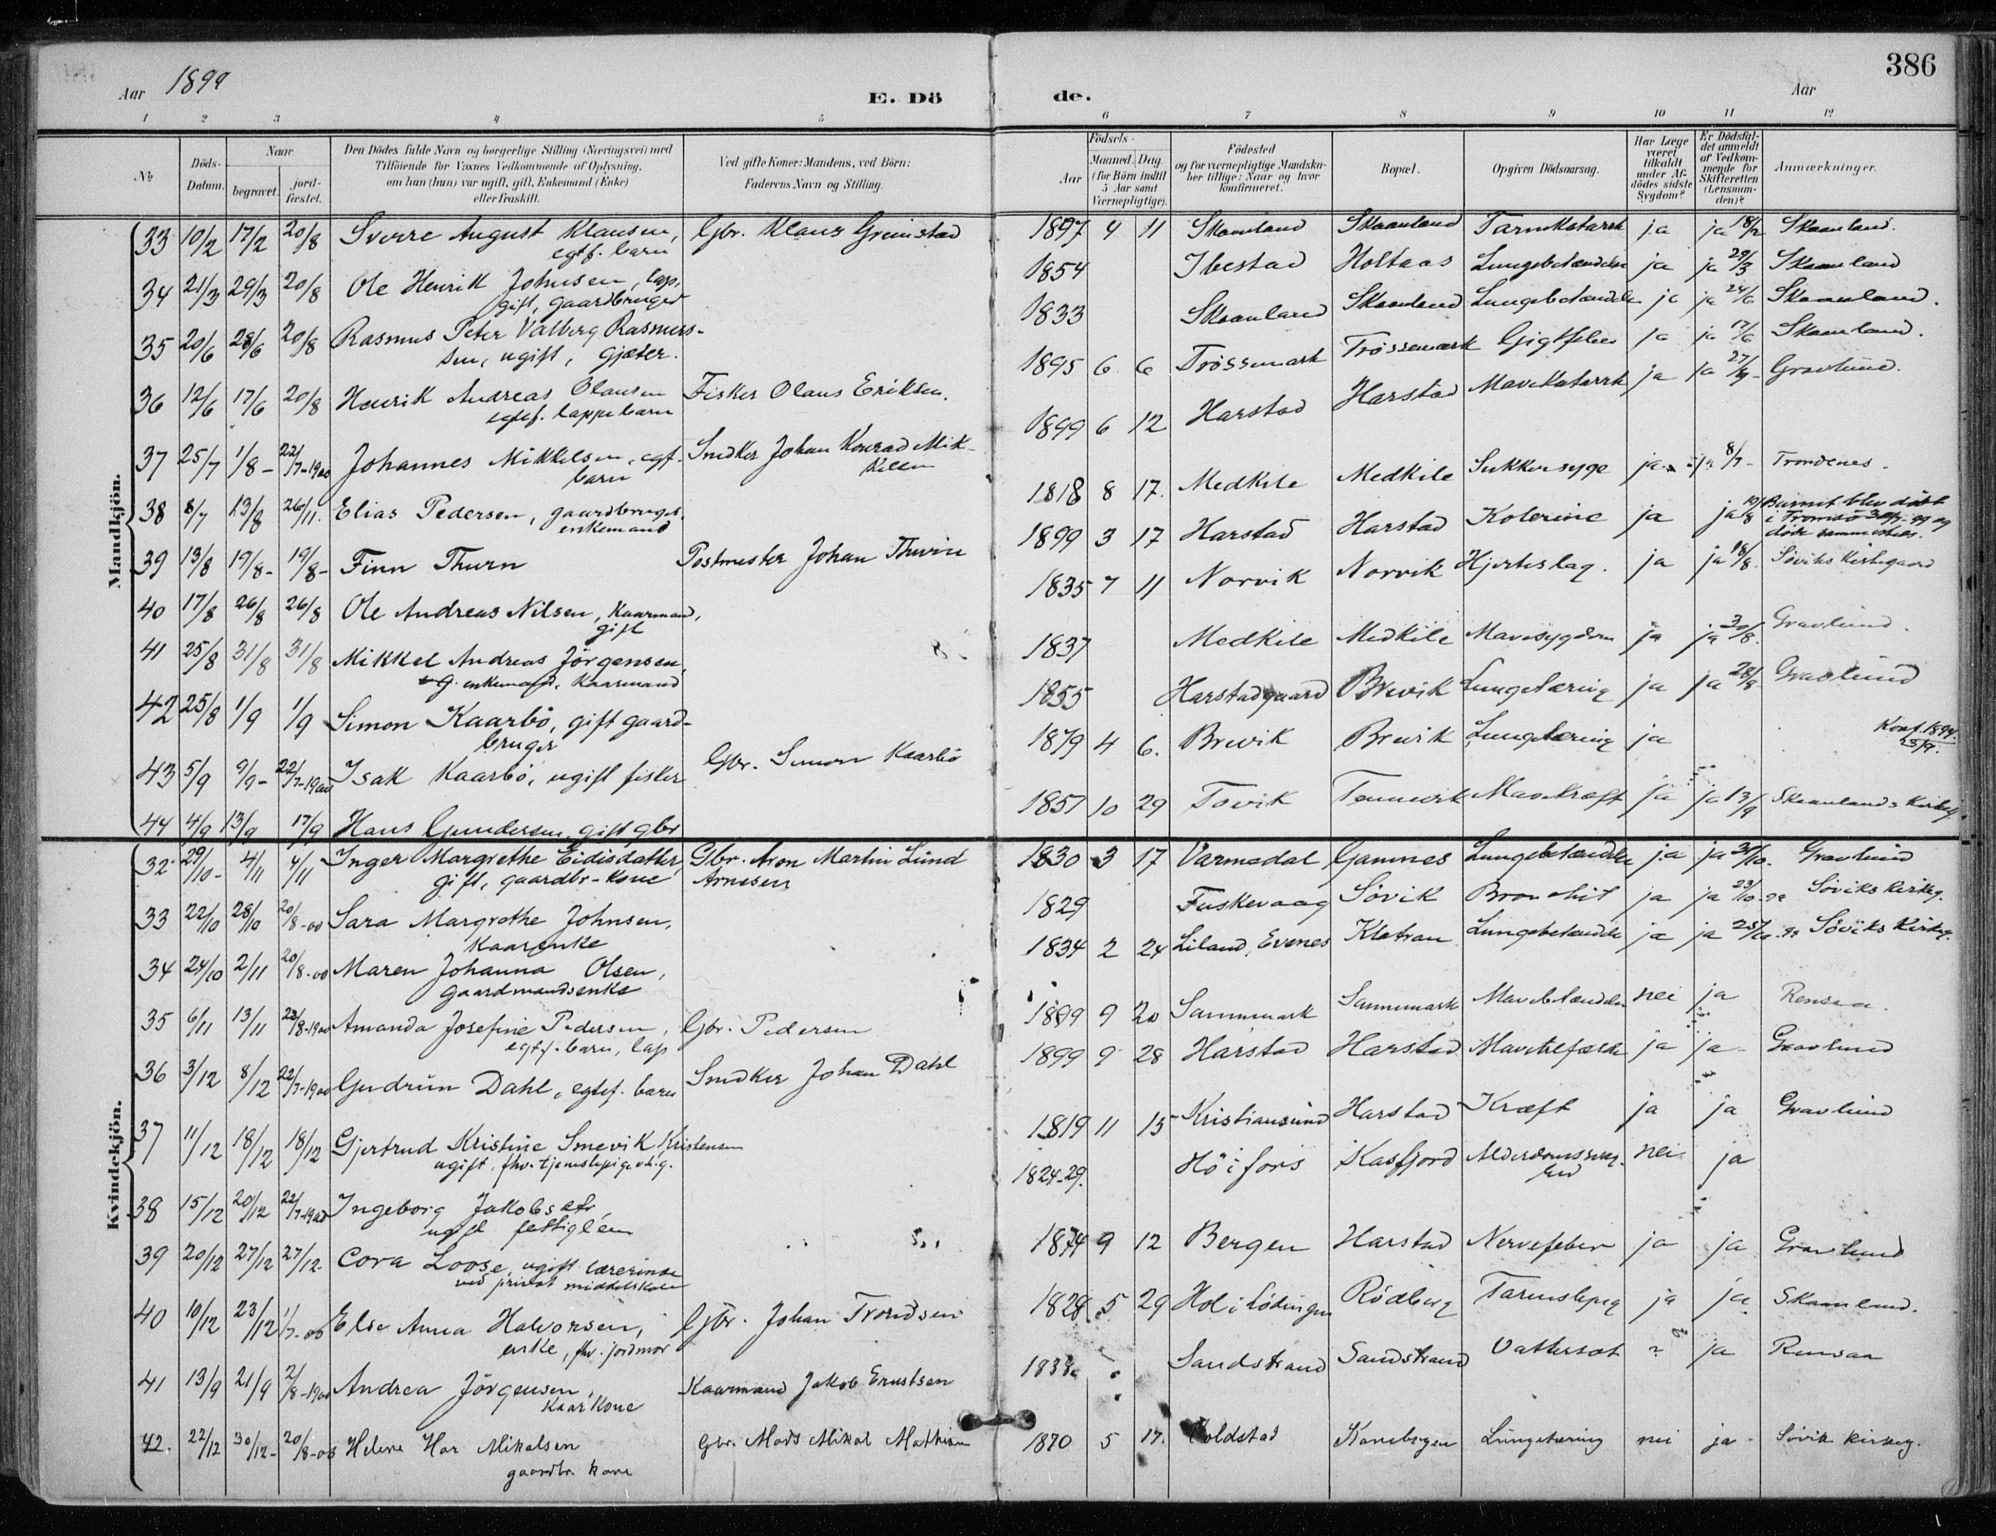 386
Aar 1899
E. Dö de.
Aar
1 2 3 4 5 6 7 8 9 10 11 12
No
Döds-Datum.
Naar
begravet.
jord-fæstet.
Den Dödes fulde Navn og borgerlige Stilling (Næringsvei) med
Tilföiende for Voxnes Vedkommende af Oplysning,
om han (hun) var ugift, gift, Enkemand (Enke)
eller fraskilt.
Ved gifte Koner: Mandens, ved Börn:
Faderens Navn og Stilling.
Födsels-
Aar
Maaned Dag
(for Börn indtil
5 Aar samt
Værnepligtige).
Födested
og for værnepligtige Mandska-
ber tillige: Naar og hvor
konfirmeret.
Bopæl.
Opgiven Dödsaarsag.
Har Læge
været
tilkaldt
under Af-
dödes sidste
Sygdom?
Er Dödsfal-
det anmeldt
af Vedkom-
mende for
Skifteretten
(Lensman-
den)?
Anmærkninger.
Mandkjön.
33 10/2 17/2 20/8 Sverre August Klausen, Gbr. Klaus Grimstad 1897 4 11 Skaanland Skaanland Tarmkatarrh ja ja 18/2 Skaanland.
egtf. barn
34 21/3 29/3 20/8 Ole Henrik Johnsen, lap. 1854 Ibestad Holtaas Lungebetændelse ja ja 29/3 Skaanland
gift, gaardbruger
35 20/6 28/6 20/8 Rasmus Peter Valberg Rasmus- 1833 Skaanland Skaanland Lungebetændelse ja ja 24/6 Skaanland.
sen, ugift, Gjæter.
36 12/6 17/6 20/8 Henrik Andreas Olausen Fisker Olaus Eriksen. 1895 6 6 Trössemark Trössemark Gigtfeber ja ja 17/6 Skaanland.
egtef. lappebarn
37 25/7 1/8 - 22/7-1900 Johannes Mikkelsen, egf. Sndker Johan Konrad Mik- 1899 6 12 Harstad Harstad Mavekatarrh ja ja 27/7 - Gravlund.
barn kelsen
38 8/7 13/8 26/11. Elias Pedersen, gaardbruger, 1818 8 17. Medkile Medkile Sukkersyge ja ja 8/7 - Trondenes.
enkemand
39 13/8 19/8 - 19/8 - Finn Thurn Postmester Johan Thurn 1899 3 17 Harstad Harstad Kolerine ja ja 19/8 Barnet blev döbt
i Tromsö og
döde sammesteds.
40 17/8 26/8 26/8 Ole Andreas Nilsen, kaarmand, 1835 7 11 Norvik Norvik Hjerteslag. ja ja 18/8. Söviks Kirkegaard
gift
41 25/8 31/8 31/8 Mikkel Andreas Jörgensen, 1837 Medkile Medkile Mavesygdom ja ja 30/8. Gravlund.
enkemand, kaarmand
42 25/8 1/9 1/9 Simon Kaarbö, gift gaard- 1855 Harstadgaard Brevik Lungetæring ja ja 28/8 Gravlund
bruger
43 5/9 9/9 - 22/7-1900 Isak Kaarbö, ugift fisker Gbr. Simon Kaarbö 1879 4 6. Brevik Brevik Lungetæring ja Konf. 1894.
25/9.
44 4/9 13/9 17/9 Hans Gundersen, gift gbr 1857 10 29 Tovik Tennevik Mavekræft ja ja 13/9 Skaanlands kirkeg.
Kvindekjön.
32 29/10 - 4/11 4/11 Inger Margrethe Eidisdatter, Gbr. Aron Martin Lund 1830 3 17 Varmedal Gamnes Lungebetændelse ja ja 31/10. Gravlund
gift, gaardbr-kone Arnesen
33 22/10 28/10 20/8-00 Sara Margrethe Johnsen, 1829 Fuskevaag Sövik Bronchit ja ja 23/10.99 Söviks kirkeg.
kaarenke
34 24/10 2/11 20/8-00 Maren Johanna Olsen, 1834 2 24 Liland, Evenes Kletran Lungebetændelse ja ja 25/10 99 Söviks Kirkeg.
gaardmandsenke
35 6/11 13/11 22/8-1900 Amanda Josefine Pedersen, Gbr. Pedersen 1899 9 20 Sammemark Sammemark Mavebetændelse nei ja Rensaa.
egtf. barn, lap
36 3/12 8/12 22/7-1900 Gudrun Dahl, egtef. barn Snedker Johan Dahl 1899 9 28 Harstad Harstad ja ja Gravlund
37 11/12 18/12 18/12 Gjertrud Kristine Smevik Kristensen 1819 11 15 Kristiansund Harstad Kræft ja ja Gravlund
ugift, fhv. tjenestepige
38 15/12 20/12 22/7-1900 Ingeborg Jakobsdtr 1824-29. Höifors Kasfjord nei ja
ugift fattiglem
39 20/12 27/12 27/12. Cora Loose, ugift lærerinde 1874 9 12 Bergen Harstad Nervefeber ja ja Gravlund
ved privat middelskole
40 10/12 23/12 1/7-00 Else Anna Halvorsen, Gbr. Johan Trondsen 1828 5 29 Hol i Lödingen Rödberg ja ja. Skaanland.
enke, fhv. jordmor
41 13/9 21/9 2/8-1900 Andrea Jörgensen, Kaarmand Jakob Ernstsen 1838 Sandstrand Sandstrand Vattersot ? ja Rensaa
kaarkone
42. 22/12 30/12 - 20/8-00 Helene Mikalsen Gbr. Mads Mikal 1870 5 17. Kanebogen Lungetæring nei ja - Sövik kirkeg.
gaardbr. kone